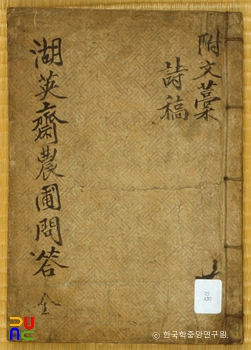 附文藁
詩稿
湖英齋農圃問答 全
한국학중앙연구원